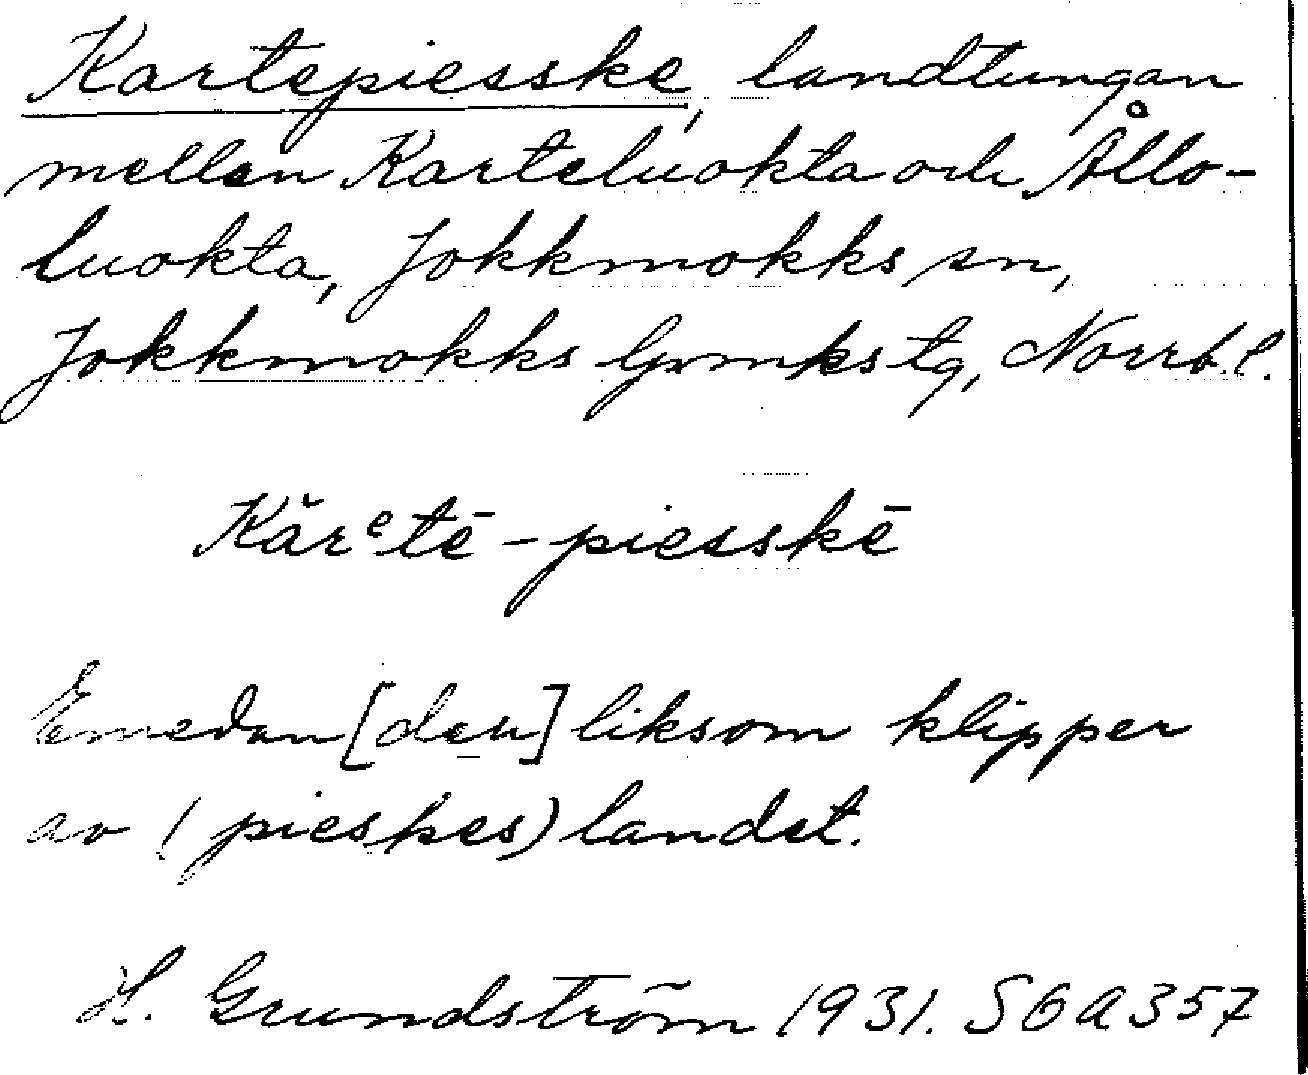 Kartepiesske, landtungan
mellan Karteluokta och Ållo-
luokta, Jokkmokks sn,
Jokkmokks lpmkstg, Norrb. l.
Kǎrᵉtē-piesskē
Emedan [den] liksom klipper
av (pieskes) landet.
H. Grundström 1931. SOA 357